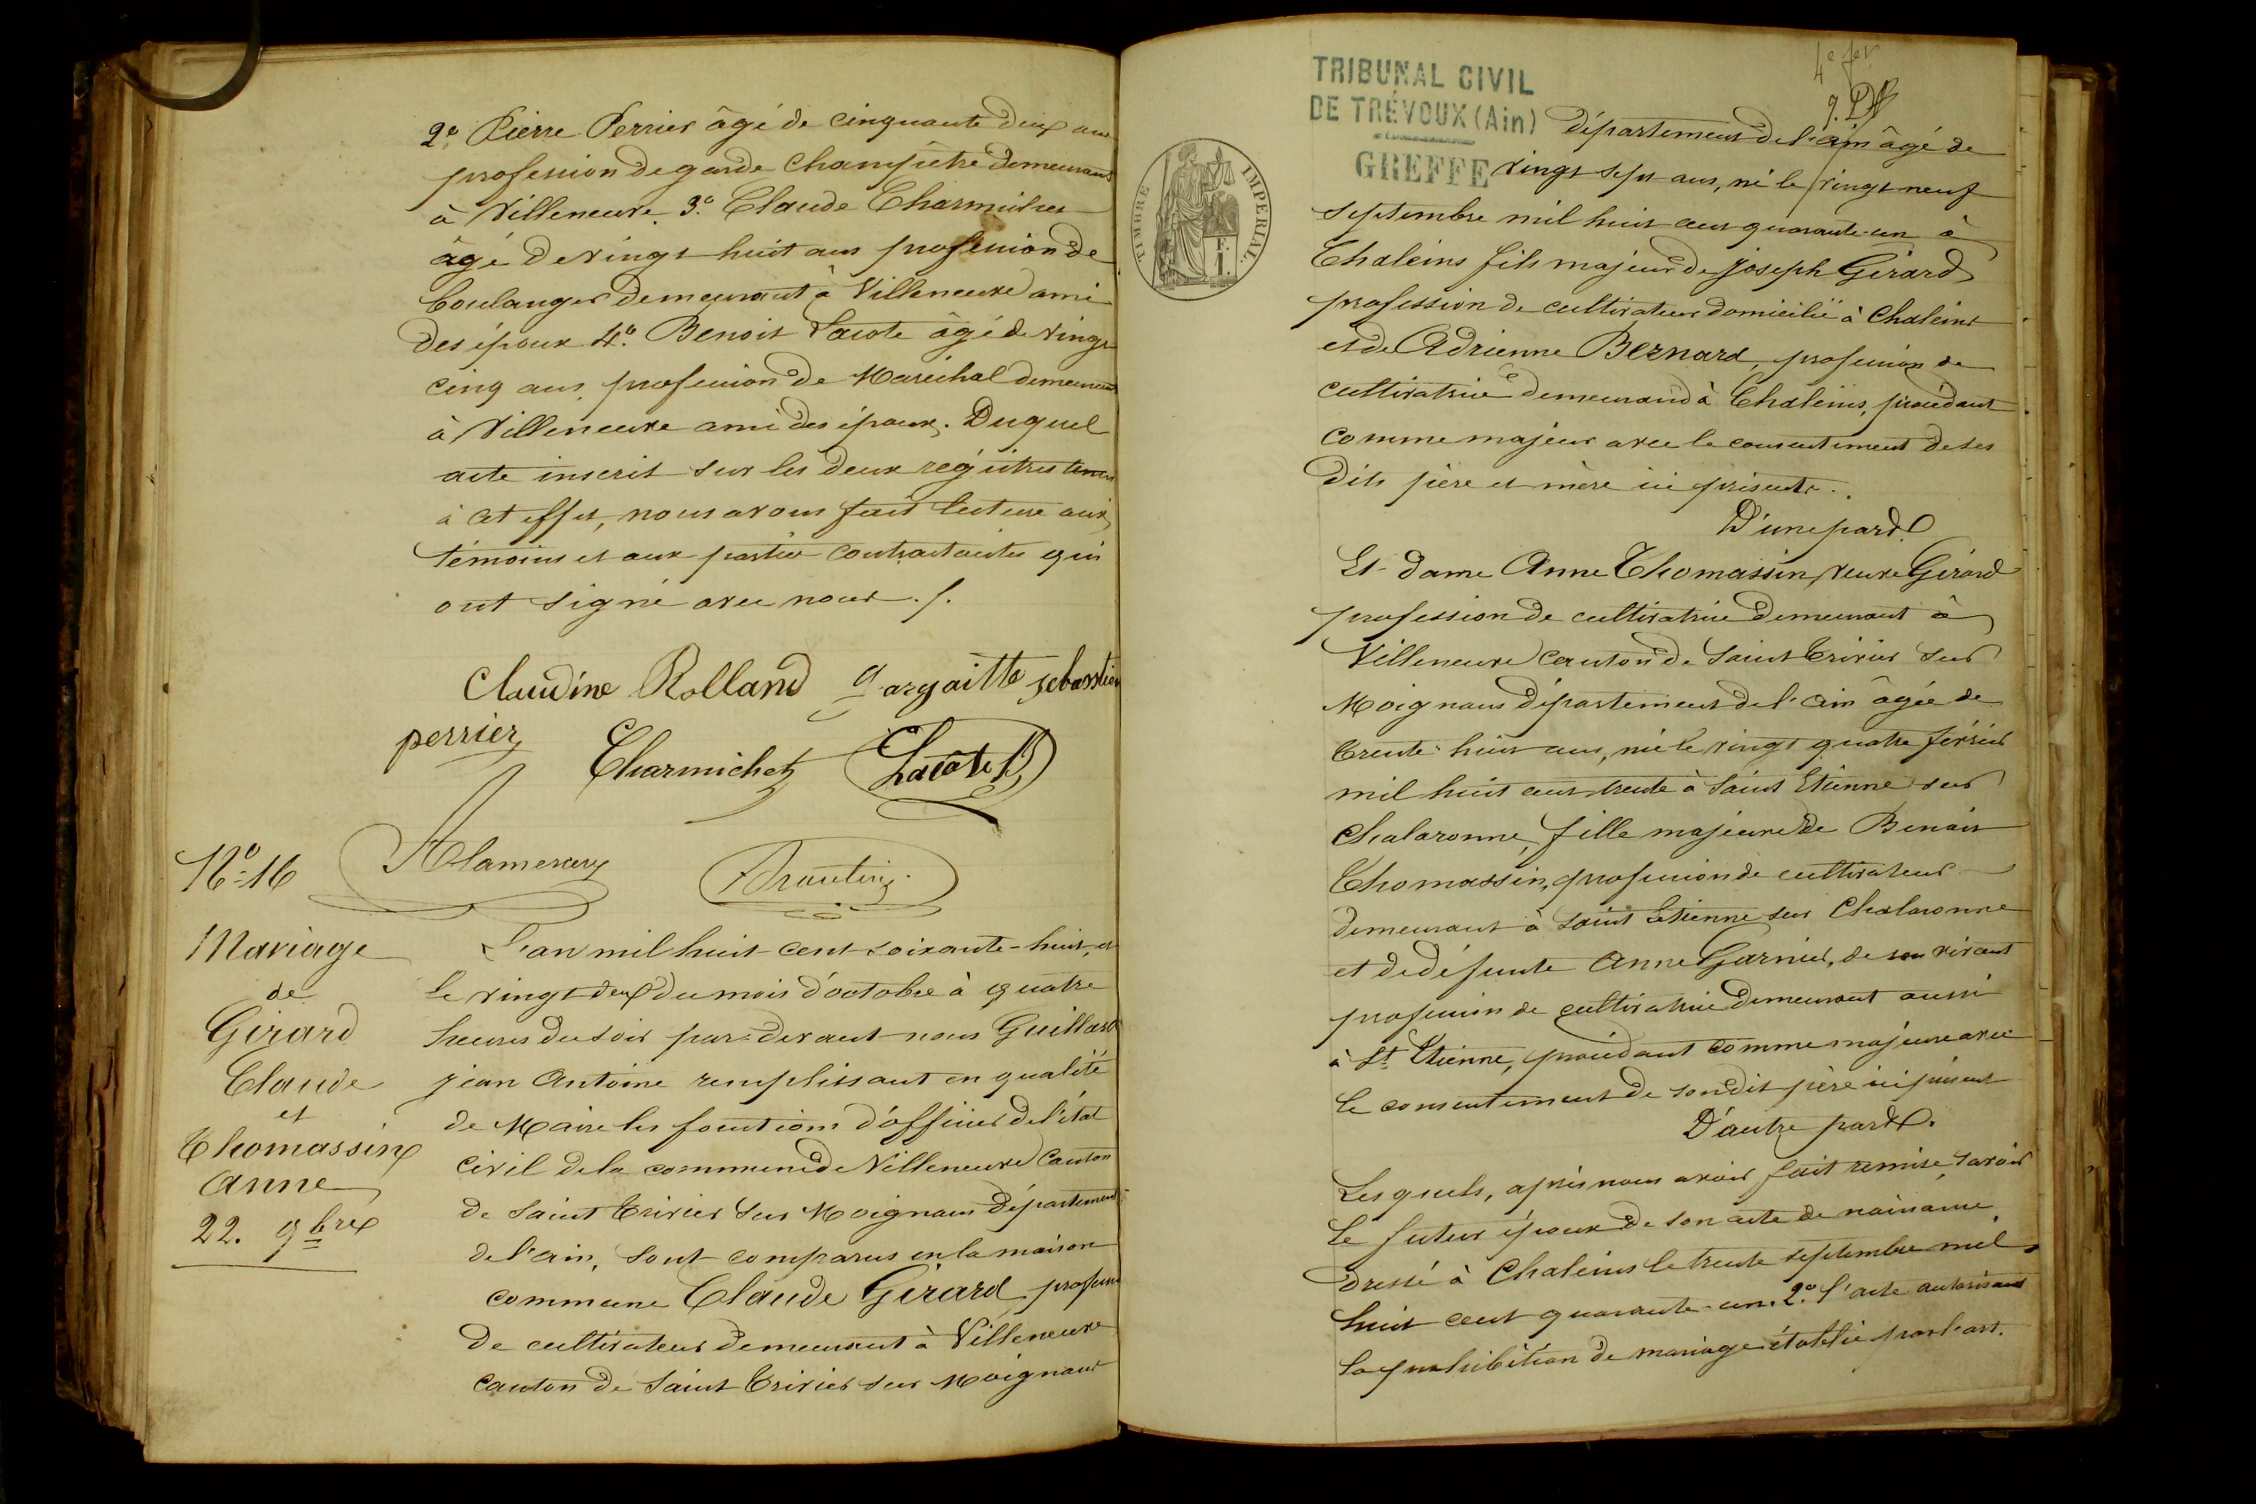 2º Pierre Perrier âgé de cinquante deux ans
profession de garde champêtre demeurant
à Villeneuve 3º Claude Charmichet
âgé de vingt huit ans profession de
boulanger demeurant à Villeneuve ami
des époux 4º Benoit Lacote âgé de vingt
cinq ans, profession de Maréchal demeurant
à Villeneuve ami des époux. Duquel
acte inscrit sur les deux registres tenus
à cet effet, nous avons fait lecture aux
témoins et aux parties contractantes qui
ont signé avec nous ./.
Claudine Rolland gargaitte sebastien
perrier Charmichet Lacôte B
Nº 16
Mariage
de
Girard
Claude
et
Thomassin
Anne
22. 9bre
L'an mil huit cent soixante-huit, et
le vingt deux du mois d'octobre à quatre
heures du soir par-devant nous Guillard
jean Antoine remplissant en qualité
de Maire les fonctions d'officier de l'état
civil de la commune de Villeneuve Canton
de Saint Trivier sur Moignans Département
de l'ain, sont comparus en la maison
commune Claude Girard profession
de cultivateur demeurant à Villeneuve
canton de Saint Trivier sur Moignans
TRIBUNAL CIVIL
DE TRÉVOUX (Ain)
GREFFE
TIMBRE IMPERIAL.
département de l'ain âgé de
vingt sept ans, né le vingt neuf
septembre mil huit cent quarante-un à
Chaleins fils majeur de Joseph Girard
profession de cultivateur domicilié à Chaleins
et de Adrienne Bernard, profession de
cultivatrice demeurand à Chaleins, procédant
comme majeur avec le consentement de ses
dits père et mère ici présents.
D'une part.
Et dame Anne Thomassin, veuve Girard
profession de cultivatrice demeurant à
Villeneuve canton de Saint Trivier sur
Moignans département de l'ain âgée de
trente-huit ans, née le vingt quatre février
mil huit cent trente à Saint Etienne sur
Chalaronne, fille majeure de Benoit
Thomassin, profession de cultivateur
demeurant à Saint Etienne sur Chalaronne
et de défunte Anne Garnier, de son vivant
profession de cultivatrice demeurant aussi
à St Etienne, procédant comme majeure avec
le consentement de son dit père ici présent
D'autre part.
Les quels, après nous avoir fait remise, savoir
Le futur époux de son acte de naissance
dressé à Chaleins le trente septembre mil
huit cent quarante-un. 2º l'acte autorisant
la prohibition de mariage établie par l'art.